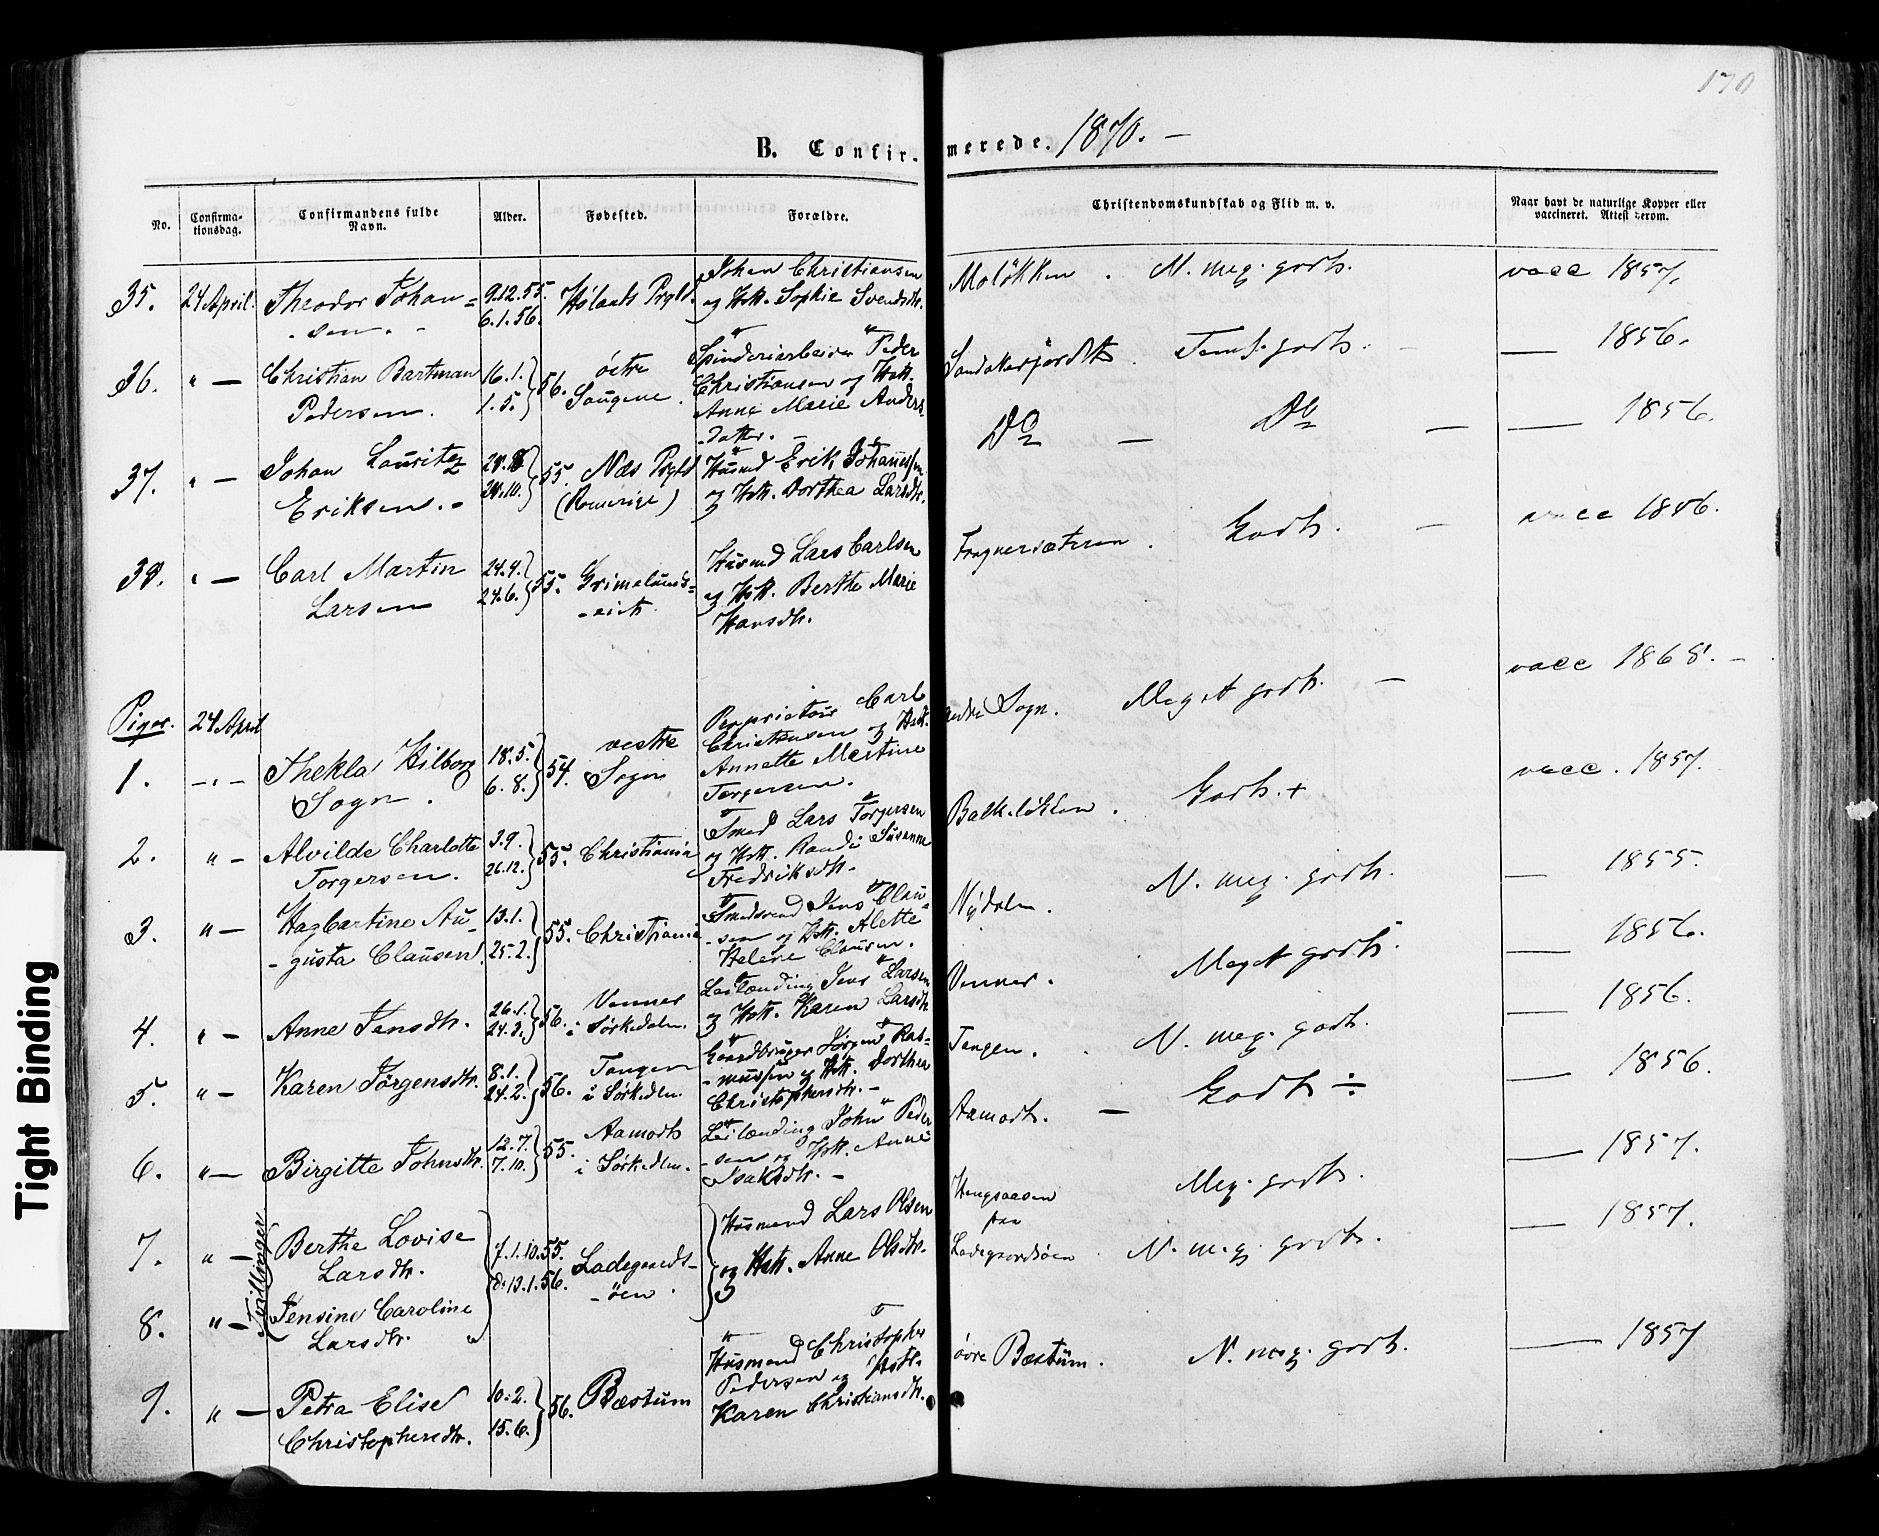 170
B. Confirmerede. 1870. —
No.
Confirma-
tionsdag.
Confirmandens fulde
Navn.
Alder.
Fødested.
Forældre.
Christendomskundskab og Flid m. v.
Naar havt de naturlige Kopper eller
vaccineret. Attest derom.
35. 24 April. Theodor Johan=
- sen. -
9.12.55.
6.1.56.
Hølands Prgld.
Johan Christiansen
og Hstr. Sophie Svendsdtr.
Moløkken . N. meg. godt. vacc 1857.
36. " — Christian Bartman
Pedersen.
16.1.
1.5. } 56.
østre
Saugene.
Spinderiarbeider Peder
Christiansen og Hstr.
Anne Marie Anders
-datter. -
Temf. godt. — 1856.
37. " — Johan Lauritz
Eriksen. -
55. Næs Prgld
(Romerige)
Husmd Erik Johannessen
og Hstr. Dorthea Larsdtr.
Do — Do — — 1856.
38. " — Carl Martin
Larsen
24.4.
24.6. } 55.
Grimelunds=
-eiet
Husmd Lars Carlsen
og Hstr. Berthe Marie
Hansdtr.
Frognersæteren . Godt. — vacc 1856.
Piger. 24 April
1. -"- Thekla Hilborg
Sogn .
18.5.
6.8. } 54.
vestre
Sogn
Proprietær Carl
Christensen og Hstr.
Annette Martine
Torgersen.
Sogn. Meget godt. — vacc 1868. —
2. " - Alvilde Charlotte
Torgersen.
3.9.
26.12. } 55.
Christiania
Smed Lars Torgersen
og Hstr. Randi Susanne
Fredriksdtr.
Balkeløkken . Godt. + vacc. 1857.
3. " — Hagbartine Au-
- gusta Clausen
13.1.
25.2. } 55.
Christiania
Smedsvend Jens Clau-
-sen og Hstr. Alette
Helene Clausen.
Nydalen. N. meg. godt. — 1855.
4. " - Anne Jensdtr.
26.1.
24.3. } 56.
Venner
i Sørkedalen.
Leilænding Jens Larsen
og Hstr. Karen Larsdtr
Venner. Meget godt — 1856.
5. " - Karen Jørgensdtr.
8.1.
24.2. } 56.
Tangen
i Sørkedln.
Gaardbruger Jørgen Ras-
- mussen og Hstr. Dorthea
Christophersdtr. -
Tangen. N. meg. godt. — 1856.
6. " — Birgitte Johnsdtr.
12.7.
7.10. } 55.
Aamodt
i Sørkedln.
Leilænding John Peder
-sen og Hstr. Anne
Isaksdtr. -
Aamodt. — Godt ÷ — 1856.
Tvillinger
7. " — Berthe Lovise
Larsdtr.
8. " — Jensine Caroline
Larsdtr.
7.1.10.55.
8.13.1.56.
Ladegaards-
-øen .
Husmand Lars Olsen
og Hstr. Anne Olsdtr.
Hengsaasen
paa
Ladegaardsøen
Meg. godt. — 1857.
N. meg. godt. — 1857.
9. " — Petra Elise
Christophersdtr.
10.2.
15.6. } 56.
Bæstum
Husmand Christopher
Pedersen og Hstr.
Karen Christiansdtr.
øvre Bæstum. N. meg. godt. — 1857
Tight Binding